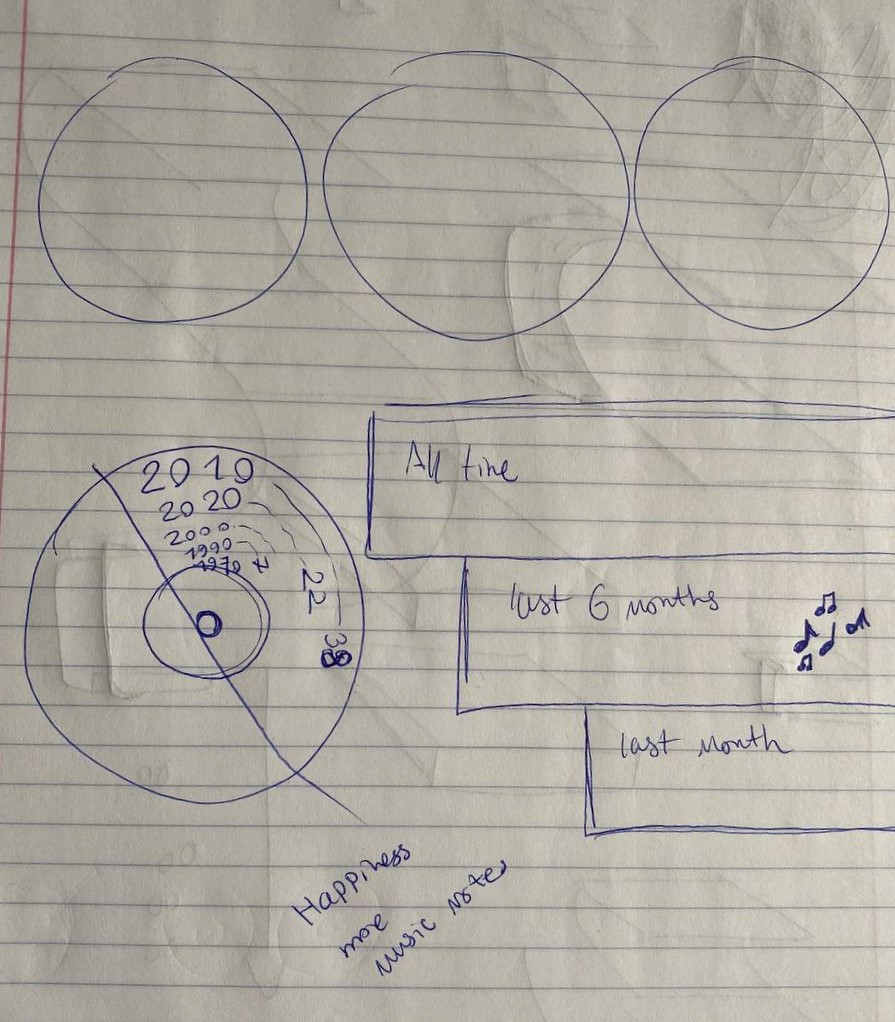 2010
2020
2000
1990
1970 7
22
38
All time
last 6 months
last month
Happiness
more
music notes